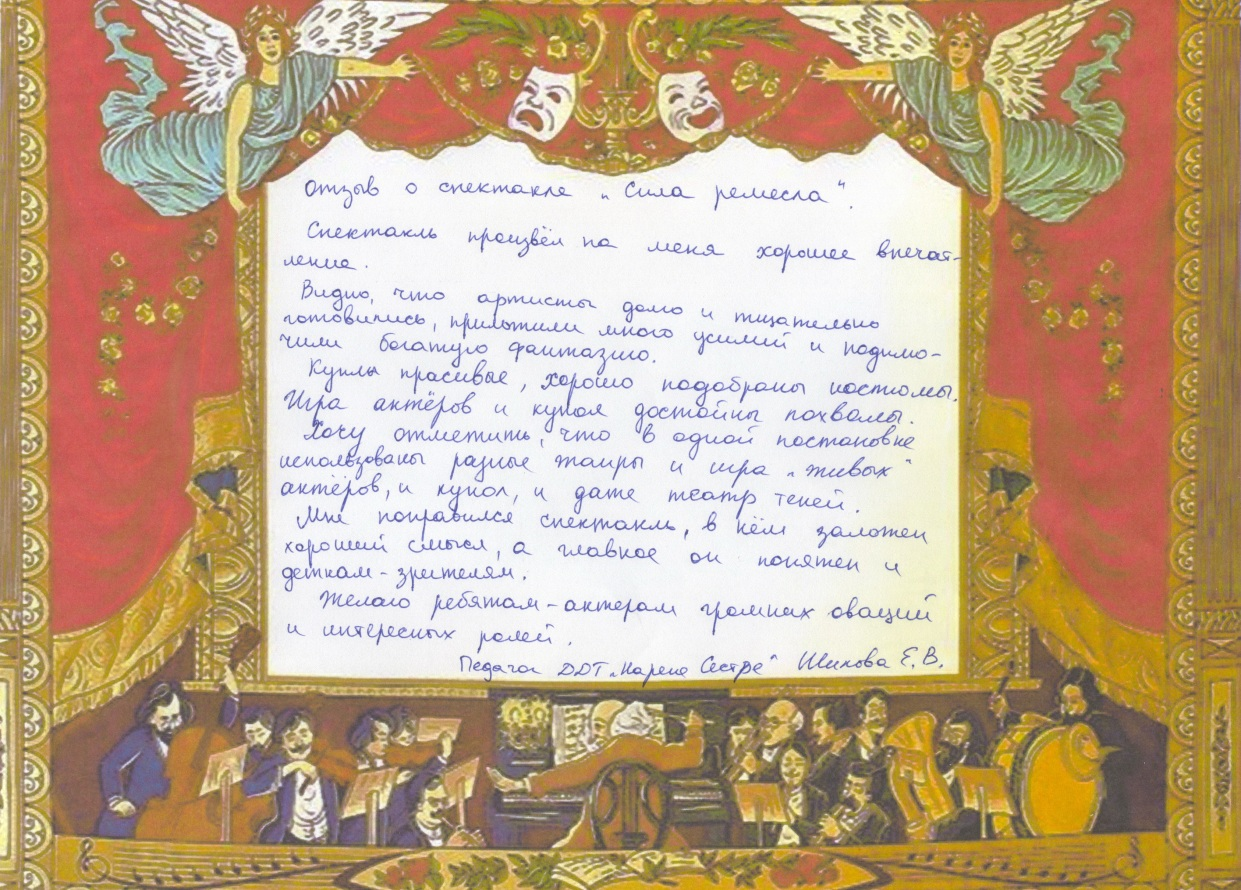 Отзыв о спектакле „Сила ремесла".
Спектакль произвёл на меня хорошее впечат-
ление.
Видно, что артисты долго и тщательно
готовились, приложили много усилий и подклю-
чили богатую фантазию.
Куклы красивые, хорошо подобраны костюмы.
Игра актёров и кукол достойны похвалы.
Хочу отметить, что в одной постановке
использованы разные жанры и игра „живых"
актёров, и кукол, и даже театр теней.
Мне понравился спектакль, в нём заложен
хороший смысл, а главное он понятен и
деткам-зрителям.
Желаю ребятам-актерам громких оваций
и интересных ролей.
Педагог ДДТ „На реке Сестре" Е.В.